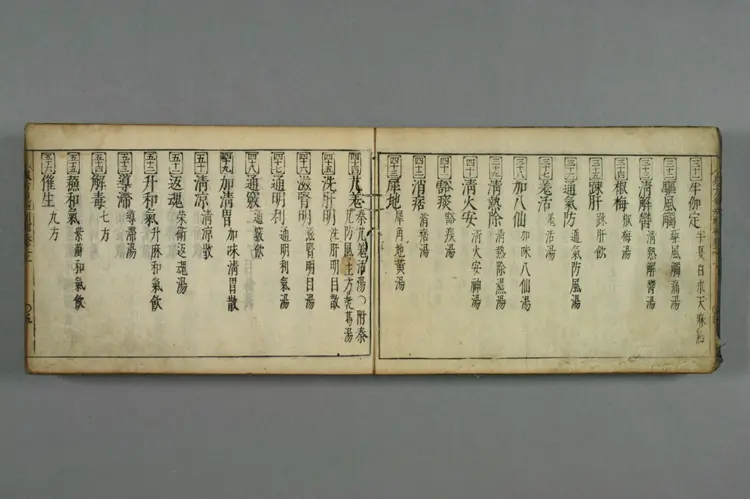 三十一 半
三十二 驅風觸 驅風觸痛湯
三十三 清解 清熱解鬱湯
三十四 椒梅 椒梅湯
三十五 疎肝 疎肝飲
三十六 通氣防 通氣防風湯
三十七 羗活 羗活湯
三十八 加八仙 加味八仙湯
三十九 清熱除 清熱除濕湯
四十 清火安 清火安神湯
四十一 豁痰 豁痰湯
四十二 消痞 消痞湯
四十三 犀地 犀角地黄湯
四十四 艽羗 秦艽羗活湯 附秦艽防風 羗葛湯
四十五 洗肝明 洗肝明目散
四十六 滋腎明 滋腎明目湯
四十七 通明利 通明利氣湯
四十八 通竅 通竅飲
四十九 加清胃 加味清胃散
五十 清凉 清凉散
五十一 返魂 榮衛返魂湯
五十二 升和氣 升麻和氣飲
五十三 導滞 導滞湯
五十四 解毒 七方
五十五 蘓和氣 紫蘓和氣飲
五十六 催生 九方